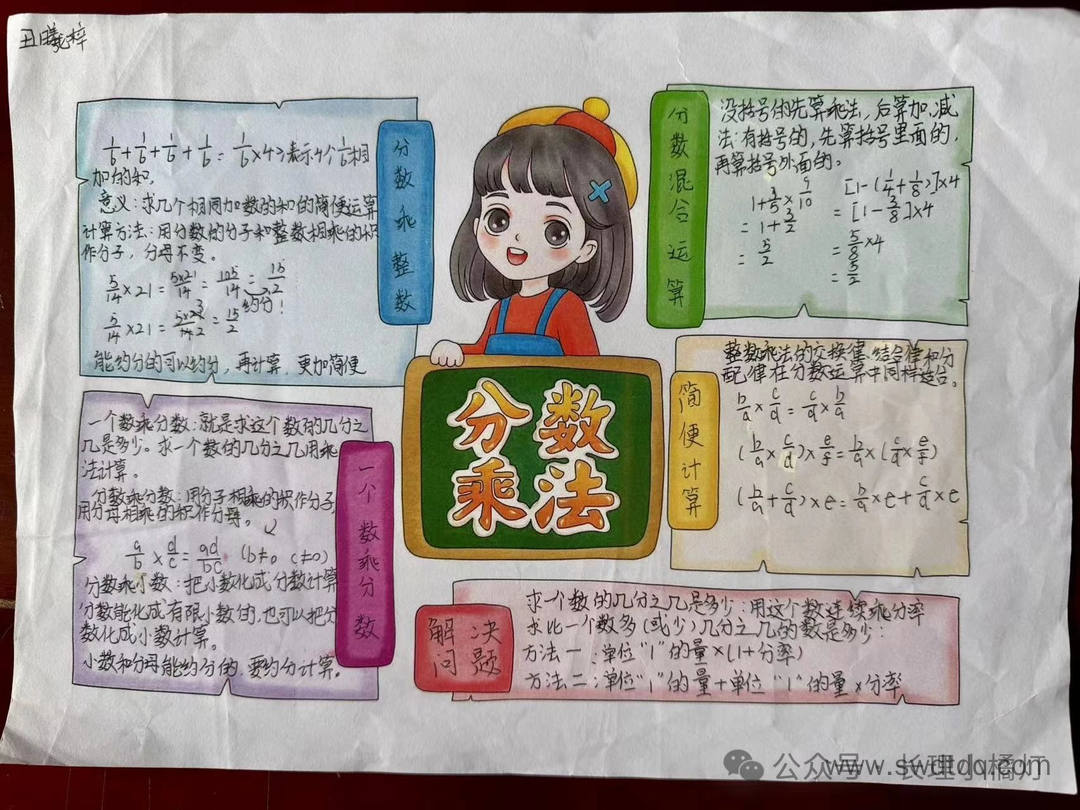 丑曦梓
分数乘整数
1/6+1/6+1/6+1/6=1/6×4→表示4个1/6相
加的和。
意义:求几个相同加数的和的简便运算
计算方法:用分数的分子和整数相乘的积
作分子,分母不变。
5/14×21=5×21/14=105/14=15/2
约分!
5/14×21=5×21/14=15/2
3
2
能约分的可以约分,再计算,更加简便
一个数乘分数
一个数乘分数:就是求这个数的几分之
几是多少。求一个数的几分之几用乘
法计算。
分数乘分数:用分子相乘的积作分子,
用分母相乘的积作分母。
a/b×d/c=ad/bc (b≠0 c≠0)
分数乘小数:把小数化成分数计算
分数能化成有限小数的,也可以把分
数化成小数计算。
小数和分母能约分的,要约分计算。
分数乘法
分数混合运算
没括号的先算乘法,后算加、减
法:有括号的,先算括号里面的,
再算括号外面的。
=1+3/2
=5/2
[1-(1/4+1/8)]×4
=[1-3/8]×4
=5/8×4
=5/2
简便计算
整数乘法的交换律、结合律和分
配律在分数运算中同样适合。
b/a×c/d=c/d×b/a
(b/a×c/d)×e/f=b/a×(c/d×e/f)
(b/a+c/d)×e=b/a×e+c/d×e
解决问题
求一个数的几分之几是多少:用这个数连续乘分率
求比一个数多(或少)几分之几的数是多少:
方法一:单位"1"的量×(1+分率)
方法二:单位"1"的量+单位"1"的量×分率
公众号 长理小橘灯